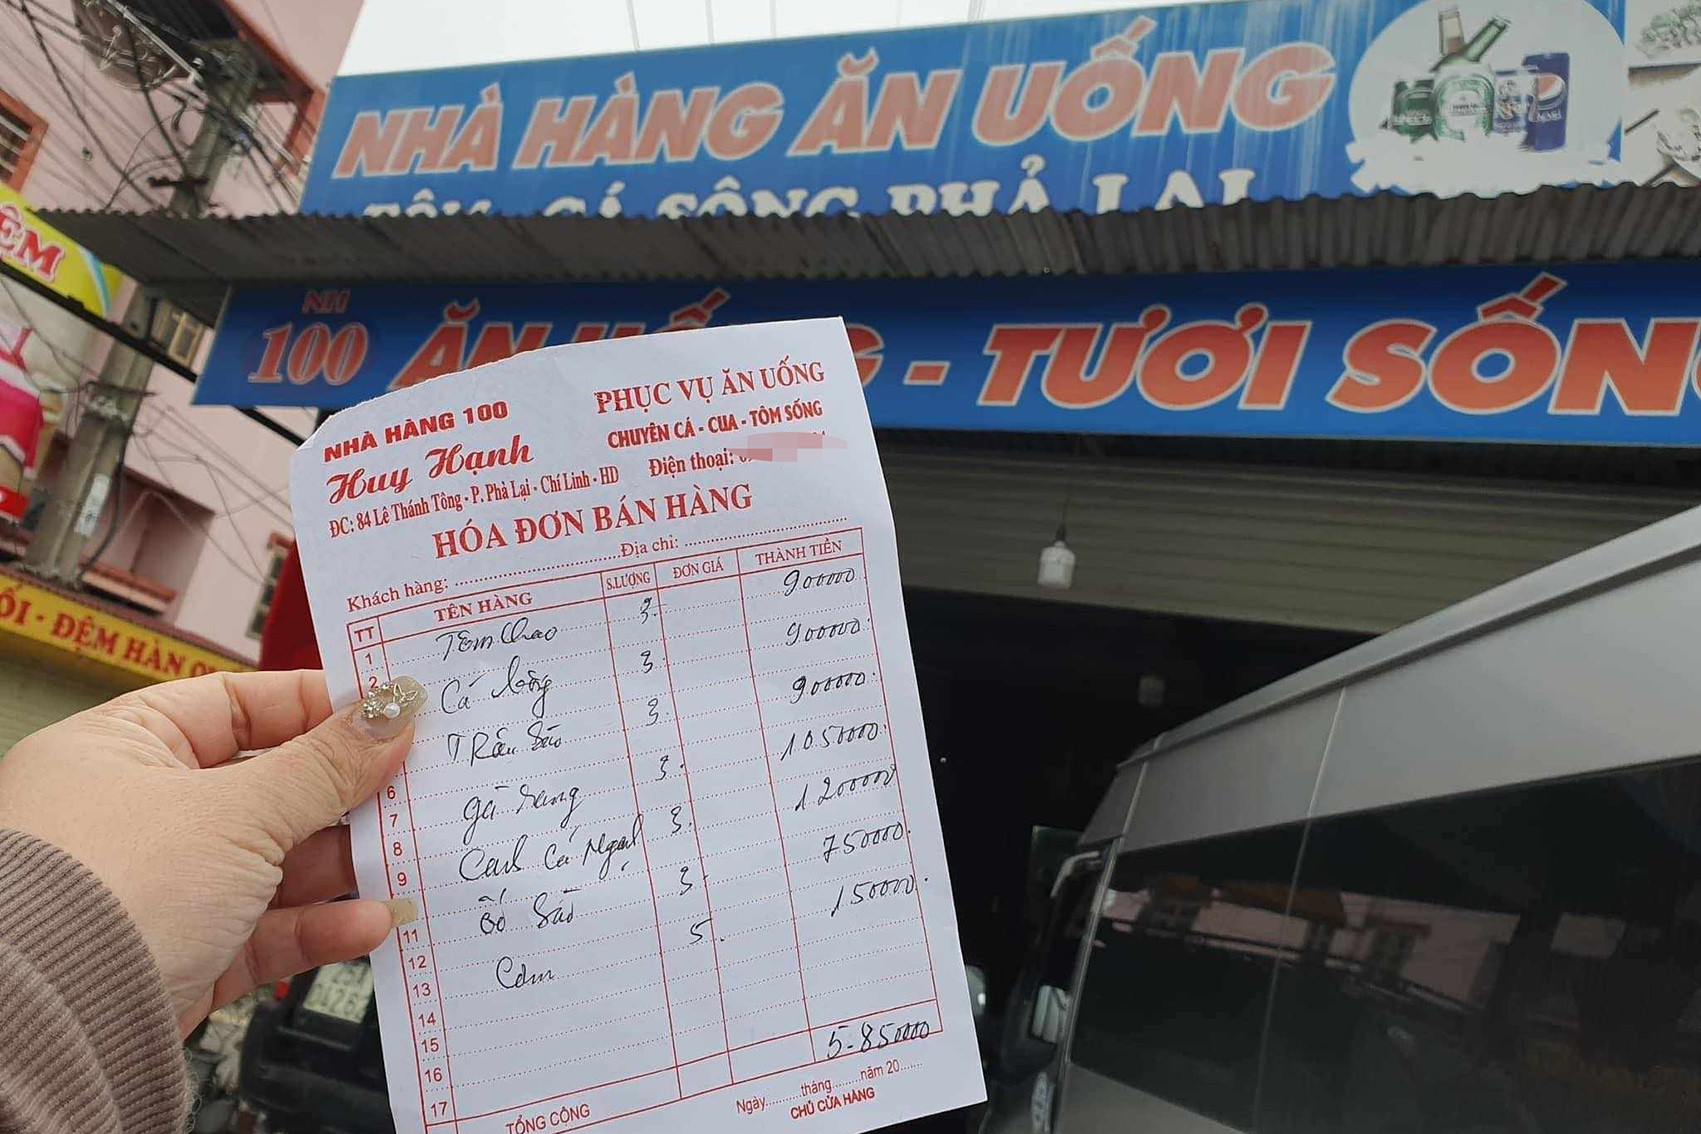 NHÀ HÀNG ĂN UỐNG
CÁ SÔNG PHẢ LẠI
NH
100 ĂN UỐNG - TƯƠI SỐNG
ỆM
ỐI - ĐỆM HÀN
NHÀ HÀNG 100
Huy Hạnh
PHỤC VỤ ĂN UỐNG
CHUYÊN CÁ - CUA - TÔM SỐNG
ĐC: 84 Lê Thánh Tông - P. Phả Lại - Chí Linh - HD
Điện thoại:
HÓA ĐƠN BÁN HÀNG
Khách hàng: Địa chỉ:
TT TÊN HÀNG S.LƯỢNG ĐƠN GIÁ THÀNH TIỀN
1 Tôm Chao 3 900000
2 Cá 3 900000
Trâu Sào 3 900000
6
7 gà rang 3 1050000
8
9 Canh Cá Ngạnh 3 1200000
Bò Sào 3 750000
11
12 Cơm 5 150000
13
14
15
16 5.850000
17
TỔNG CỘNG
Ngày tháng năm 20
CHỦ CỬA HÀNG